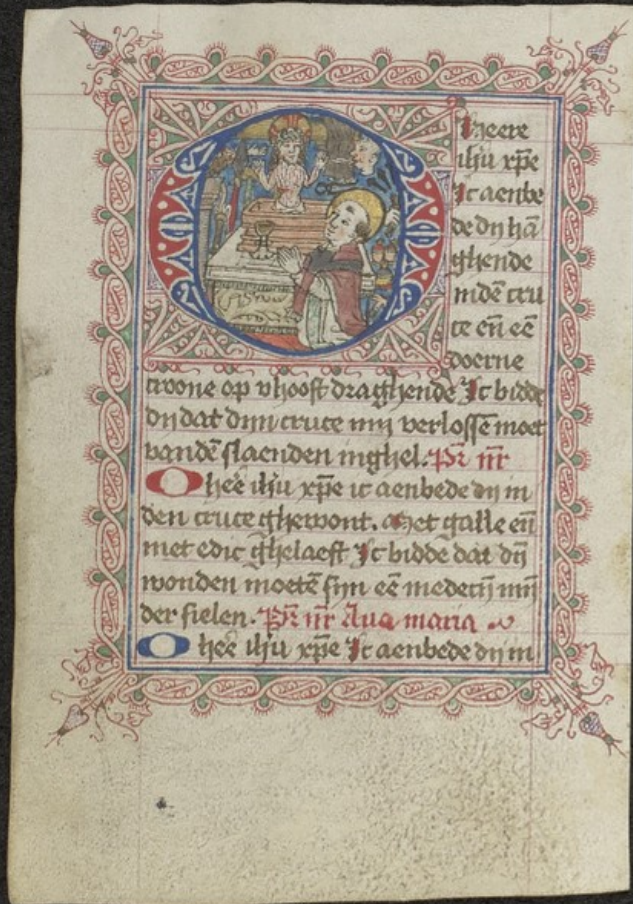 O heere
ihu xp̄e
Ic aenbe
de dy hā
ghende
indē cru
ce en̄ eē
doerne
croone op v hooft draghende Ic bidde
dy dat dyn cruce my verlosse moet
vandē slaenden inghel. Pr̄ nr̄
O heē ihu xp̄e ic aenbede dy in
den cruce ghewont. Met galle en̄
met edic ghelaeft Ic bidde dat dy
wonden moetē syn eē medecy my
der sielen. Pr̄ nr̄ Aua maria
O heē ihu xp̄e Ic aenbede dy in